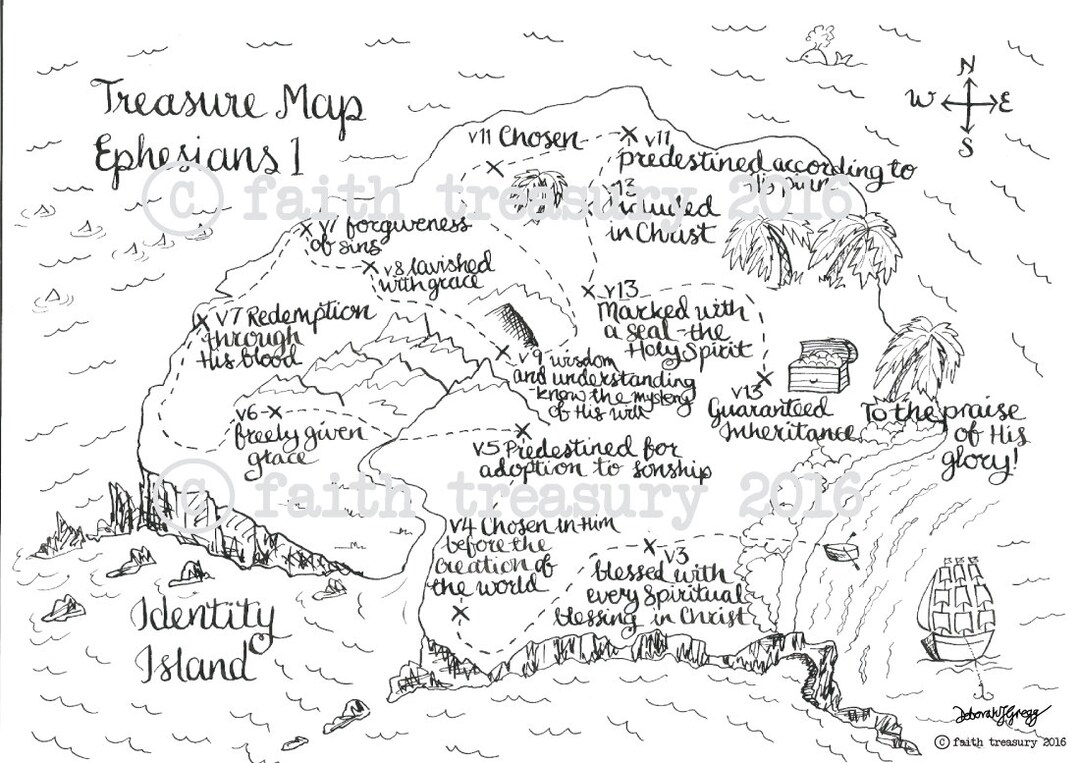 Treasure Map
Ephesians 1
N
W E
S
v11 Chosen
v11
predestined according to
v13
included
in Christ
© faith treasury 2016
v7 forgiveness
of sins
v8 lavished
with grace
v7 Redemption
through
His blood
v13
Marked with
a seal - the
Holy Spirit
v9 wisdom
and understanding
- know the mystery
of His will
v13
Guaranteed
Inheritance
To the praise
of His
glory!
v6
freely given
grace
v5 Predestined for
adoption to sonship
© faith treasury 2016
v4 Chosen in Him
before the
creation of
the world
v3
blessed with
every Spiritual
blessing in Christ
Identity
Island
Deborah J Gregg
© faith treasury 2016